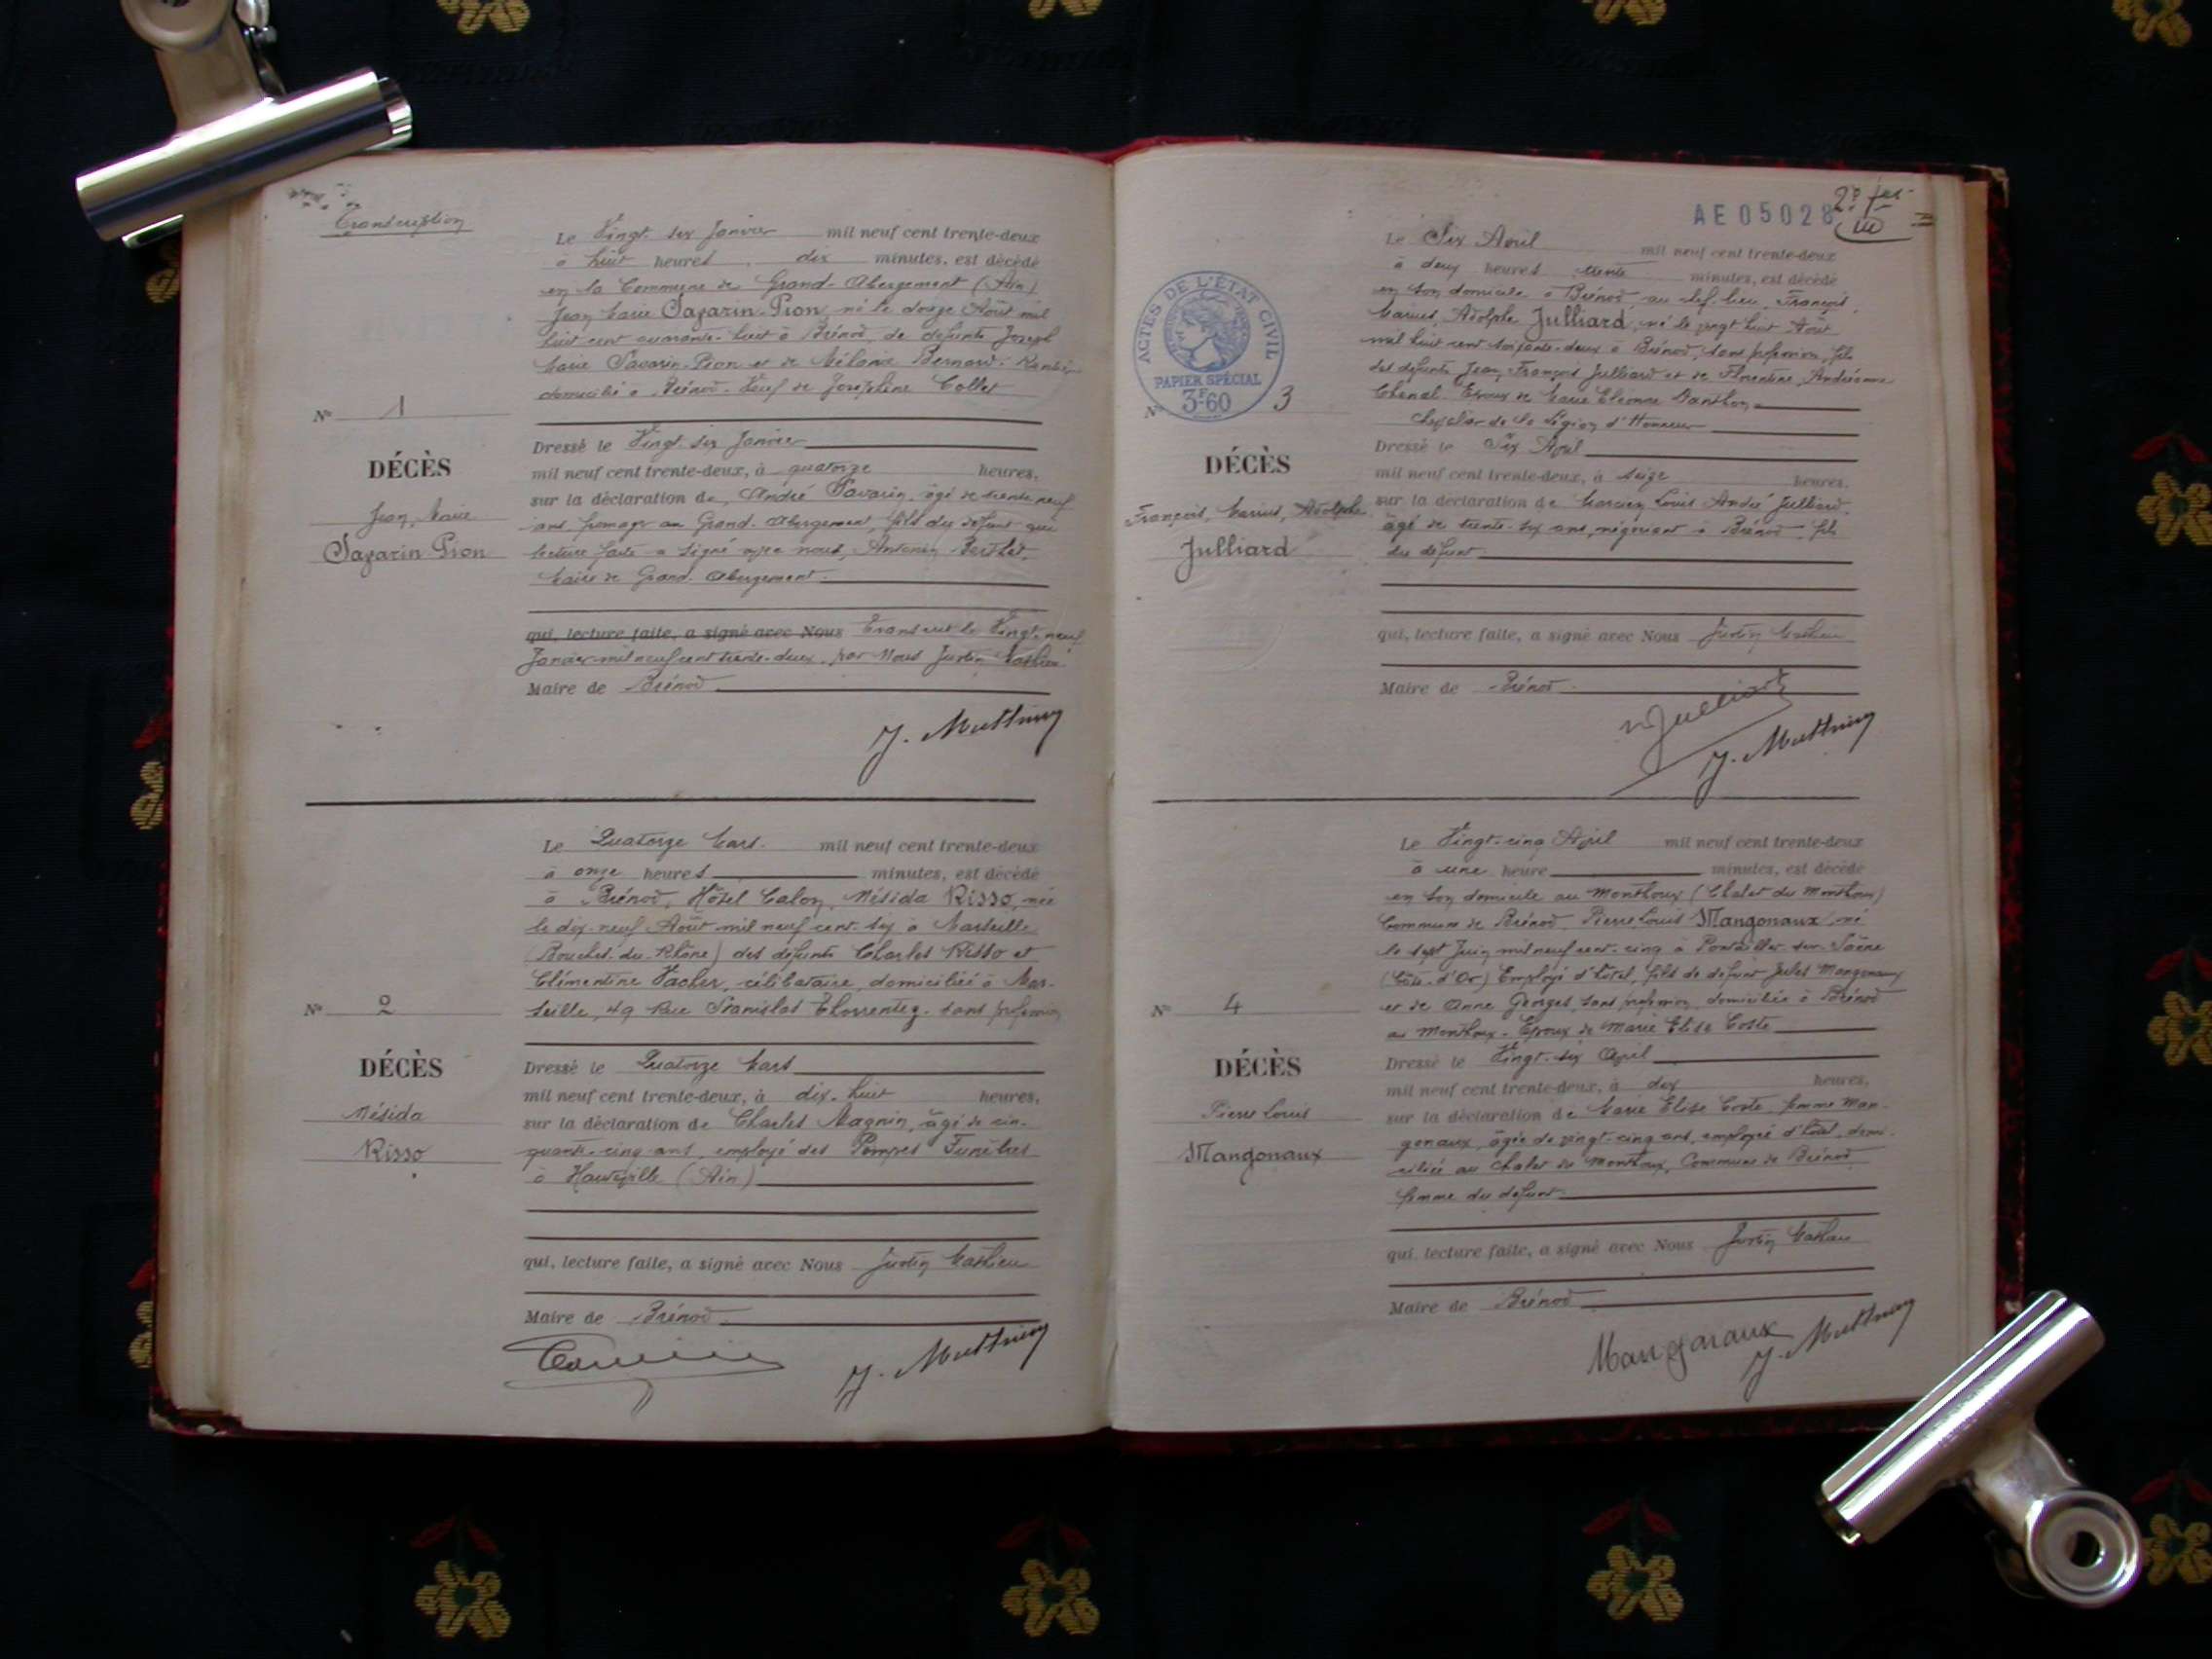 Transcription
Le Vingt-six Janvier mil neuf cent trente-deux
à huit heures dix minutes, est décédé
en la Commune de Grand-Abergement (Ain)
Jean Marie Savarin-Pion, né le douze Août mil
huit cent quarante-huit à Brénod, de défunts Joseph
Marie Savarin-Pion et de Mélanie Bernard. Rentier,
domicilié à Brénod. Veuf de Joséphine Collet
N° 1
DÉCÈS
Jean Marie
Savarin Pion
Dressé le Vingt-six Janvier
mil neuf cent trente-deux, à quatorze heures,
sur la déclaration de André Savarin, âgé de trente-neuf
ans, fromager au Grand-Abergement, fils du défunt qui
lecture faite a signé avec nous, Antonin Berthet,
Maire de Grand-Abergement.
qui, lecture faite, a signé avec Nous Transcrit le Vingt-neuf
Janvier mil neuf cent trente-deux, par Nous Justin Mathieu
Maire de Brénod
J. Matthieu
Le Quatorze Mars mil neuf cent trente-deux
à onze heures minutes, est décédé
à Brénod, Hôtel Calon, Mésida Risso, née
le dix-neuf Août mil neuf cent-six à Marseille
(Bouches-du-Rhône) des défunts Charles Risso et
Clémentine Vacher, célibataire, domiciliée à Mar-
seille, 49 Rue Stanislas sans profession
N° 2
DÉCÈS
Mésida
Risso
Dressé le Quatorze Mars
mil neuf cent trente-deux, à dix-huit heures,
sur la déclaration de Charles Magnin, âgé de cin-
quante-cinq ans, employé des Pompes Funèbres
à Hauteville (Ain)
qui, lecture faite, a signé avec Nous Justin Mathieu
Maire de Brénod
J. Matthieu
AE05028
ACTES DE L'ÉTAT CIVIL
PAPIER SPÉCIAL
3F60
Le Six Avril mil neuf cent trente-deux
à deux heures trente minutes, est décédé
en son domicile à Brénod au chef-lieu, François,
Marius, Adolphe Julliard, né le vingt huit Août
mil huit cent soixante-deux à Brénod, sans profession, fils
des défunts Jean François Julliard et de Florentine Andréanne
Chenal. Epoux de Marie Eléonore Danthon
Chevalier de la Légion d'Honneur
N° 3
DÉCÈS
François, Marius, Adolphe
Julliard
Dressé le Six Avril
mil neuf cent trente-deux, à seize heures,
sur la déclaration de Marcien Louis André Julliard,
âgé de trente-six ans, négociant à Brénod, fils
du défunt
qui, lecture faite, a signé avec Nous Justin Mathieu
Maire de Brénod
Julliard
J. Matthieu
Le Vingt-cinq Avril mil neuf cent trente-deux
à une heure minutes, est décédé
en son domicile au Monthoux (Chalet du Monthoux)
Commune de Brénod Pierre Louis Mangonaux, né
le sept Juin mil neuf cent-cinq à Pontailler-sur-Saône
(Côte-d'Or) Employé d'hôtel, fils de défunt Jules Mangonaux
et de Anne Georges, sans profession, domiciliée à Brénod
au Monthoux. Epoux de Marie Elise Coste
N° 4
DÉCÈS
Pierre Louis
Mangonaux
Dressé le Vingt-six Avril
mil neuf cent trente-deux, à dix heures,
sur la déclaration de Marie Elise Coste, femme Man-
gonaux, âgée de vingt-cinq ans, employée d'hôtel, domi-
ciliée au chalet du Monthoux, Commune de Brénod
femme du défunt.
qui, lecture faite, a signé avec Nous Justin Mathieu
Maire de Brénod
Mangonaux
J. Matthieu